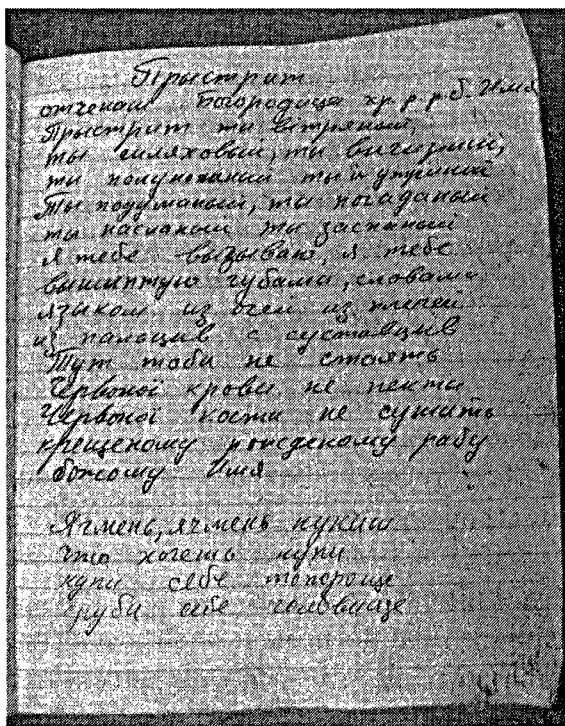 Прыстрит
отченаш Богородица хр. р. р. б. Имя
Прыстрит ти вітряный,
ты шляховый, ти
ти ти и утриний
Ты подуманый, ты погаданый
ты насланый ты заспаный
я тебе вызываю, я тебе
вышиптую губами, словами
языком из очей из плечей
из палоцив с суставцив
Тут тоби не стоять
Червоної крови не пекти
Червоної кости не сушить
крещеному рожденому рабу
божому Имя
Ячмень, ячмень кукиш
Что хочешь купи
купи себе топорище
руби себе головище